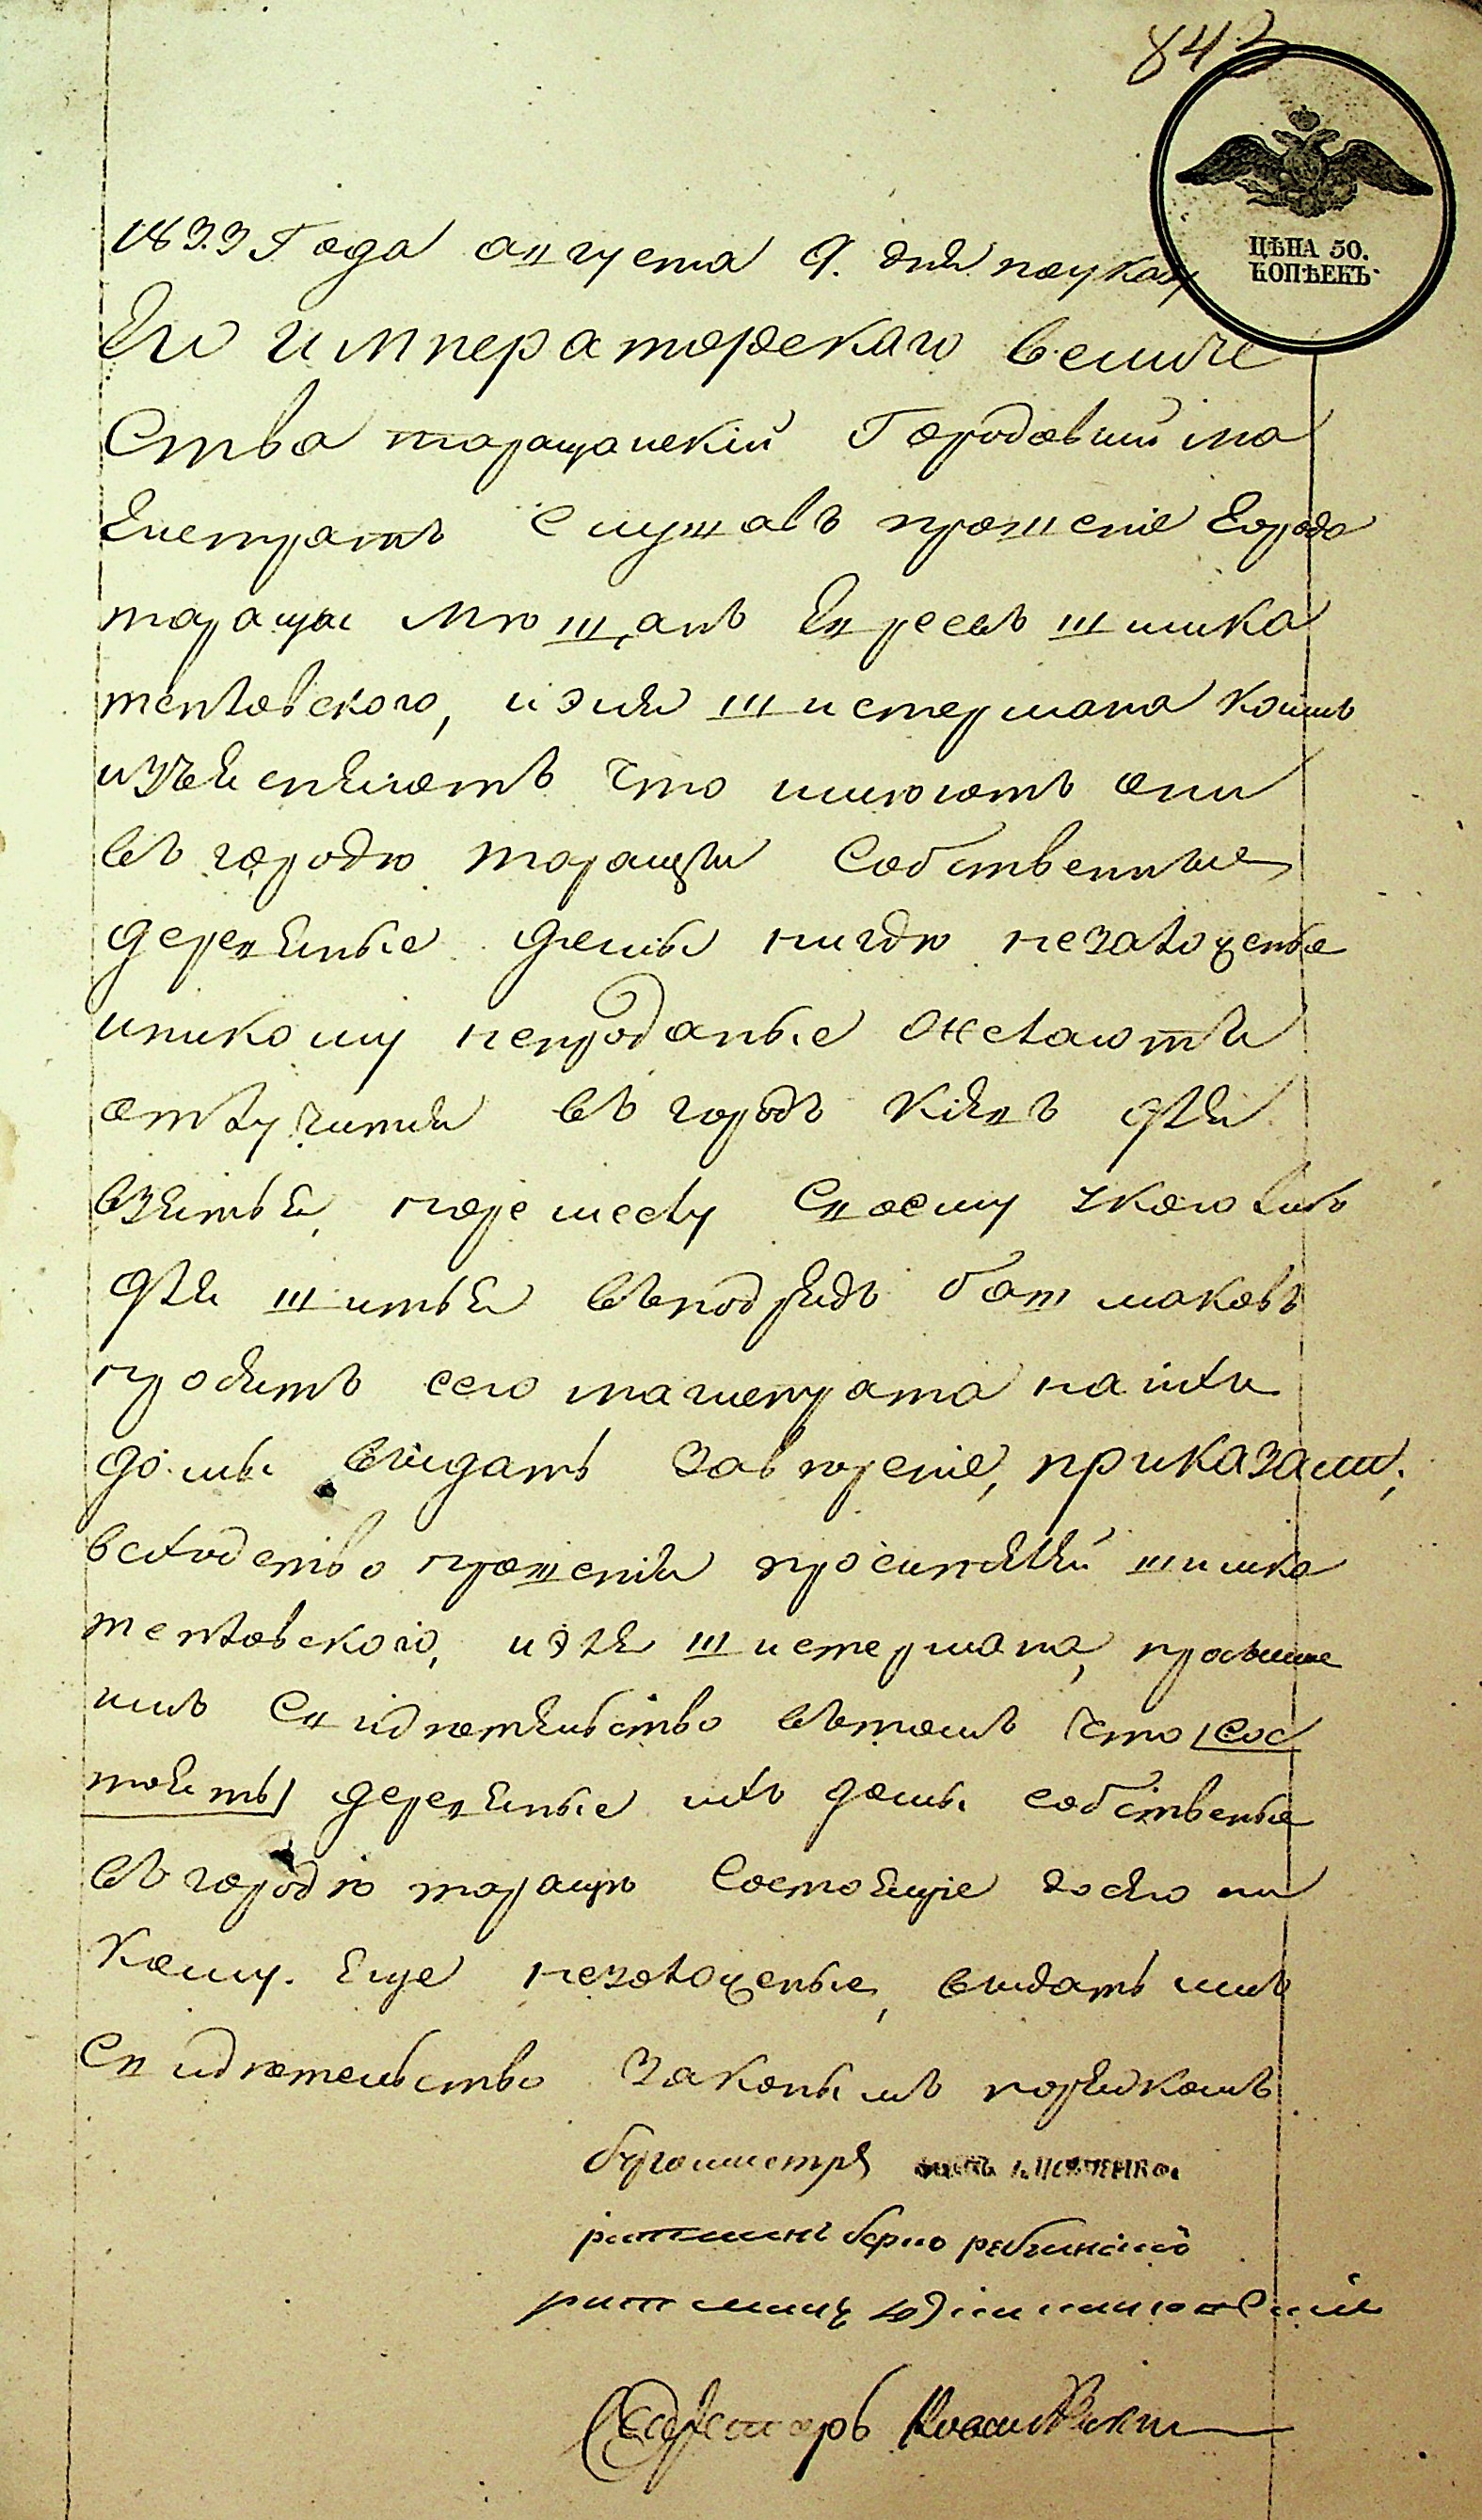 843
ЦѢНА 50.
КОПѢЕКЪ
1833 Года августа 9. дня поуказу
Его императорскаго величе
Ства таращанскій Городовый ма
гистратъ Слушавъ прошеніе Города
таращи мѣщанъ Евреевъ шимка
тепловского, и эля шистермана коимъ
изъясняютъ что имѣютъ они
въ городѣ таращи Собственные
деревяные домы нигдѣ незаложеные
иникому непроданые Желаютъ
отлучится въ городъ кіевъ для
взятья
для шитья въподрядъ башмаковъ
просятъ сего магистрата на ихъ
домы выдать завѣреніе, приказали;
всходство прошенія просителей шимка
теплавского, и эля шистермана,
имъ Свидѣтельство вътомъ что /сос
тоитъ/ деревяные ихъ домы собственые
въ городѣ таращѣ Состоящіе досего ни
кому. Еще незаложеные, выдать имъ
Свидѣтельство Законымъ порядкомъ
бургомистръ
ратманъ
ратманъ
Секретарь